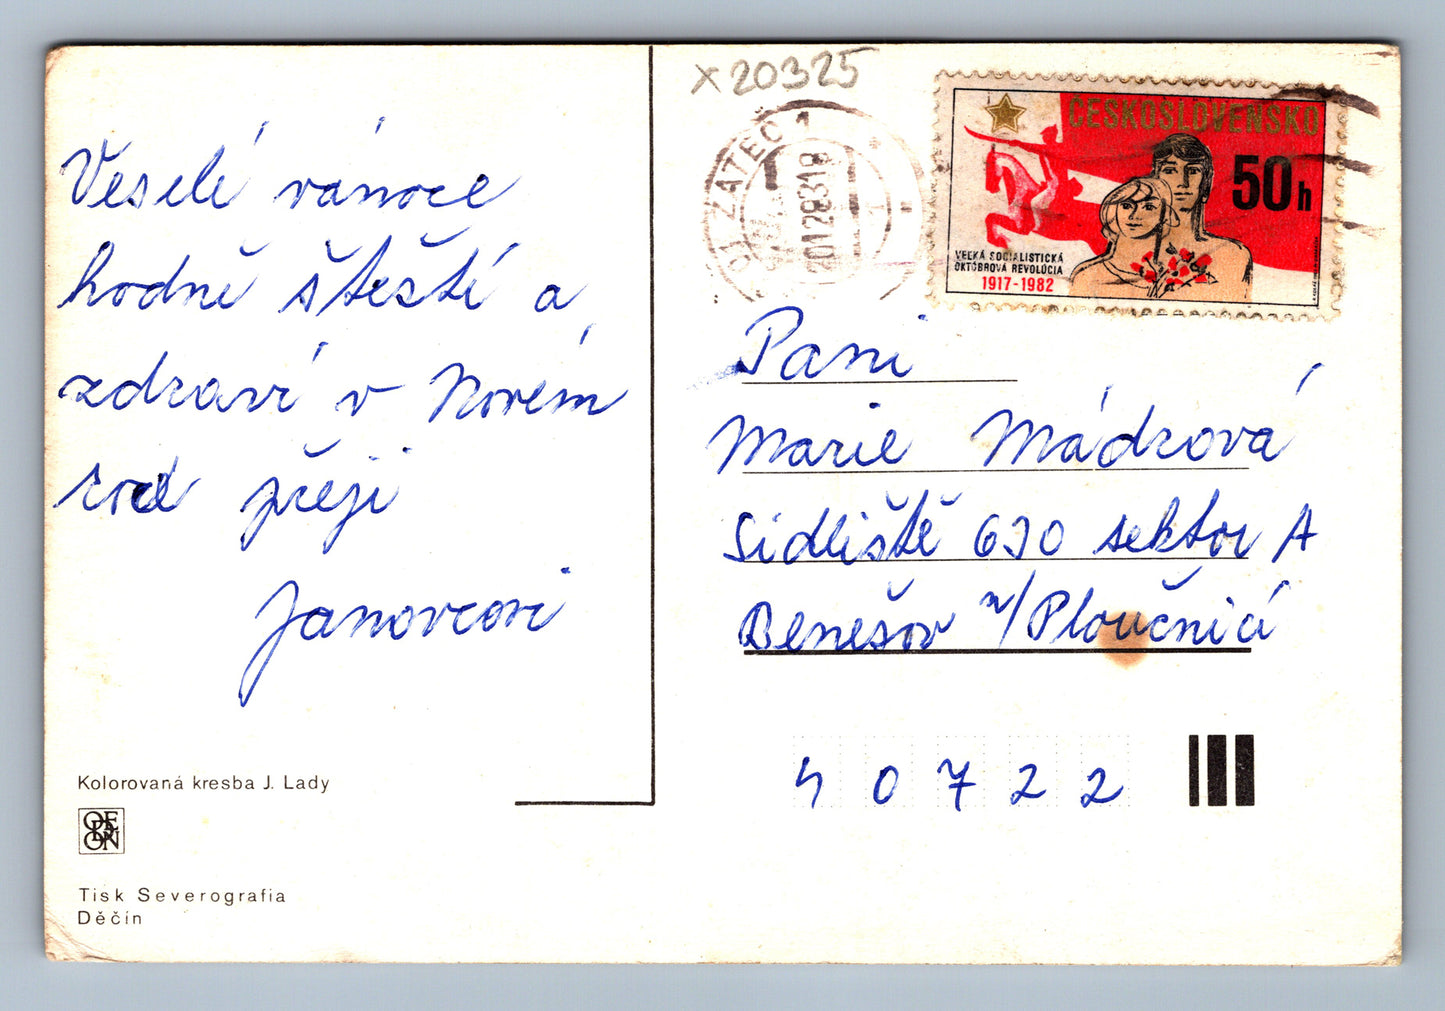 Veselé vánoce
hodně štěstí a
zdraví v Novém
roce přeji
Janovcovi
Kolorovaná kresba J. Lady
ODEON
Tisk Severografia
Děčín
x20325
01 ŽATEC 1
20128318
ČESKOSLOVENSKO
50h
VEĽKÁ SOCIALISTICKÁ
OKTÓBROVÁ REVOLÚCIA
1917-1982
Paní
Marie Mádrová
Sidliště 630 sektor A
Benešov n/Ploučnicí
40722